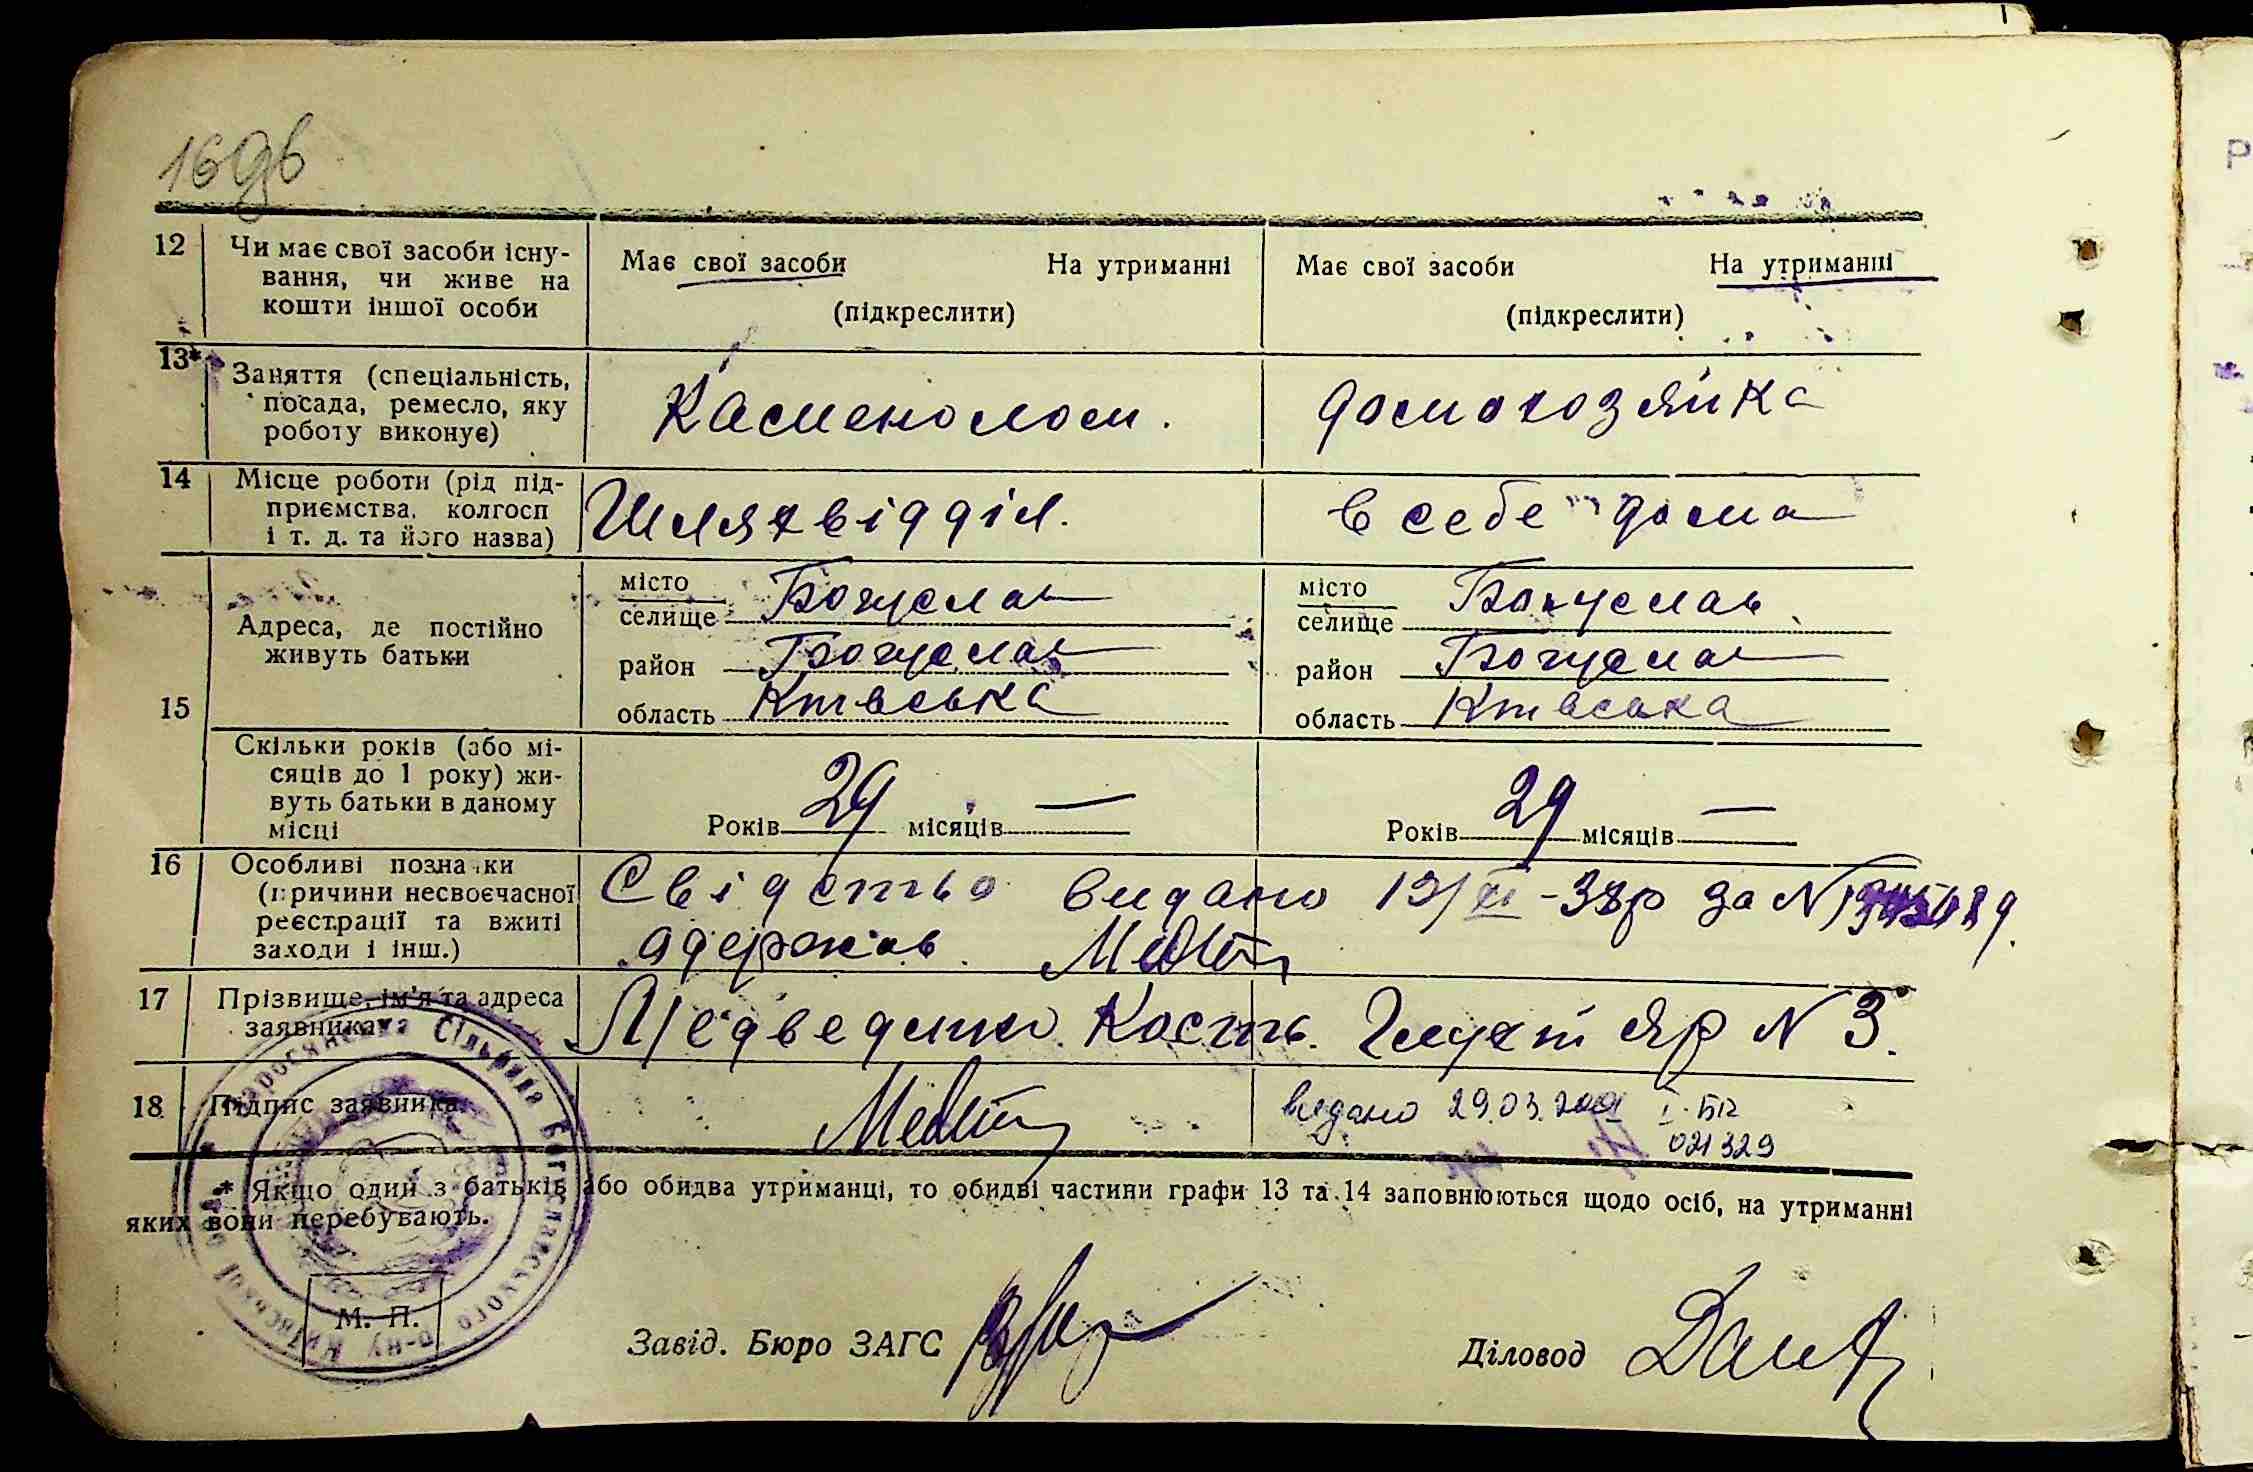 169в
12 Чи має свої засоби існу-
вання, чи живе на
кошти іншої особи
Має свої засоби На утриманні
(підкреслити)
Має свої засоби На утриманні
(підкреслити)
13* Заняття (спеціальність,
посада, ремесло, яку
роботу виконує)
Каменолом.
домохозяйка
14 Місце роботи (рід під-
приємства, колгосп
і т. д. та його назва)
Шляхвідділ.
в себе дома
15
Адреса, де постійно
живуть батьки
місто
селище Богуслав
район Богуслав
область Київська
місто
селище Богуслав
район Богуслав
область Київська
Скільки років (або мі-
сяців до 1 року) жи-
вуть батьки в даному
місці
Років 29 місяців —
Років 29 місяців —
16 Особливі познаки
(причини несвоєчасної
реєстрації та вжиті
заходи і інш.)
Свідотво видано 13/XI-38р за N
адержав.
17 Прізвище, ім'я та адреса
заявника
Медведенко Кость. Глухий Яр N 3.
18 Підпис заявника
видано 29.03.2001 І-БК
021329
* Якщо один з батьків або обидва утриманці, то обидві частини графи 13 та 14 заповнюються щодо осіб, на утриманні
яких вони перебувають.
Сільрада Богуславського р-ну Київської
М. П.
Завід. Бюро ЗАГС
Діловод